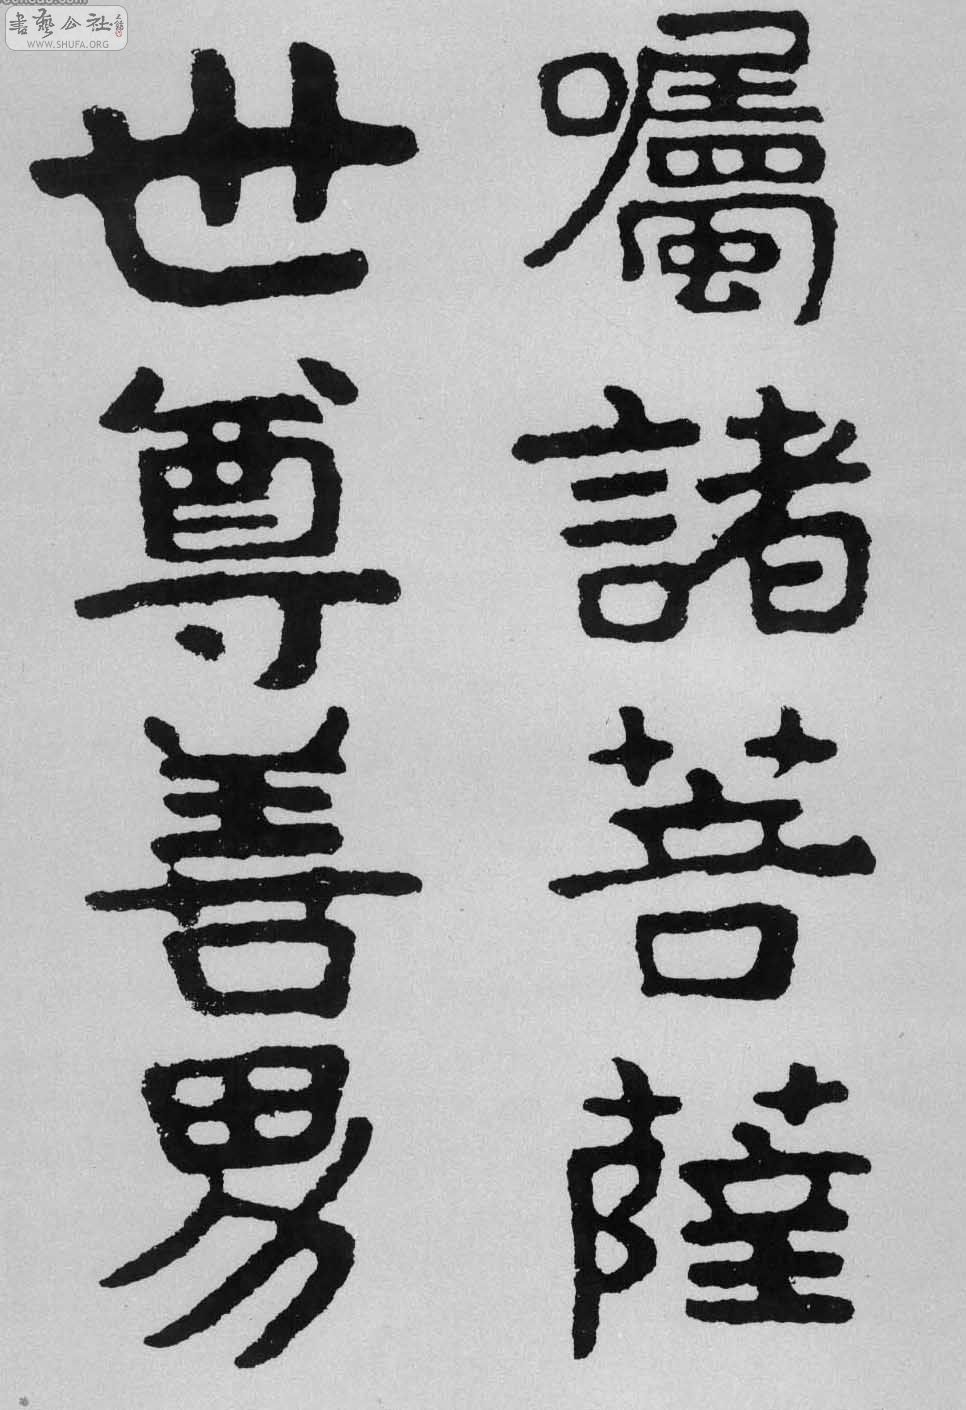 囑諸菩薩
世尊善男
書藝公社
WWW.SHUFA.ORG